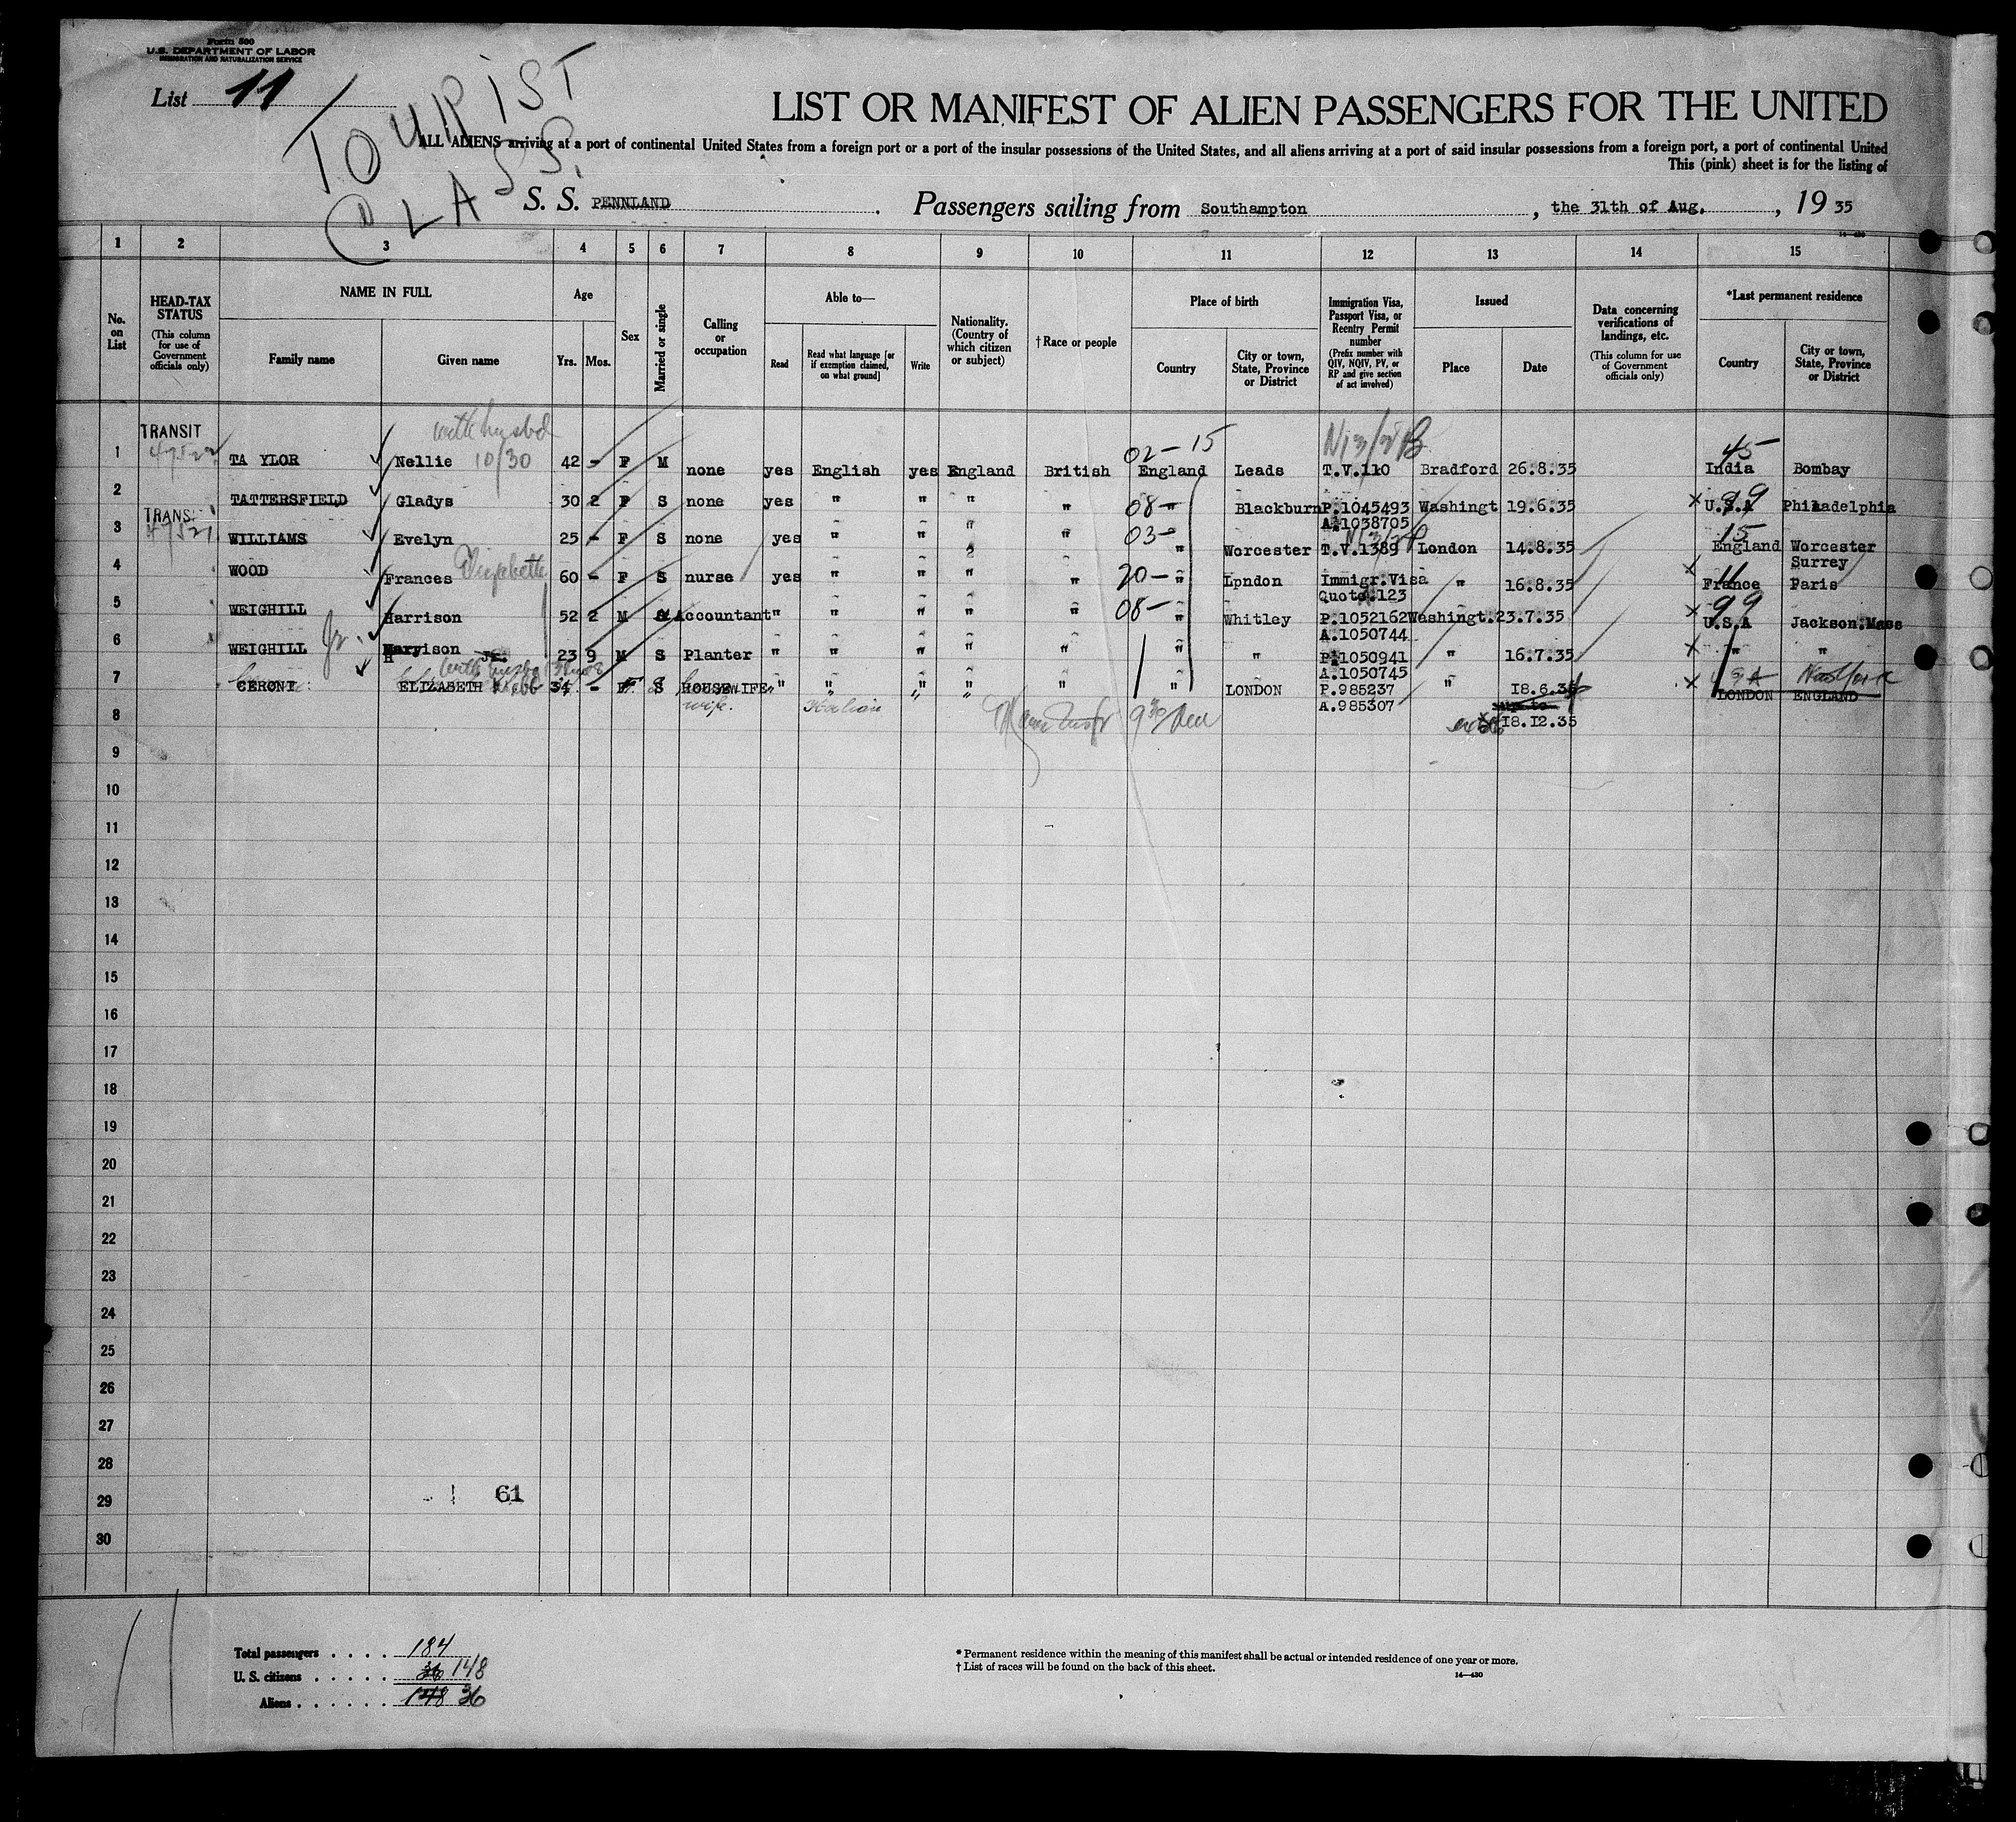 Form 500
U.S. DEPARTMENT OF LABOR
IMMIGRATION AND NATURALIZATION SERVICE
List 11
TOURIST
CLASS.
LIST OR MANIFEST OF ALIEN PASSENGERS FOR THE UNITED
ALL ALIENS arriving at a port of continental United States from a foreign port or a port of the insular possessions of the United States, and all aliens arriving at a port of said insular possessions from a foreign port, a port of continental United
This (pink) sheet is for the listing of
S. S. PENNLAND Passengers sailing from Southampton, the 31th of Aug., 1935
14—430
1 2 3 4 5 6 7 8 9 10 11 12 13 14 15
No. on List
HEAD-TAX STATUS (This column for use of Government officials only)
NAME IN FULL
Family name Given name
Age
Yrs. Mos.
Sex
Married or single
Calling or occupation
Able to—
Read Read what language [or if exemption claimed, on what ground] Write
Nationality. (Country of which citizen or subject)
†Race or people
Place of birth
Country City or town, State, Province or District
Immigration Visa, Passport Visa, or Reentry Permit number (Prefix number with QIV, NQIV, PV, or RP and give section of act involved)
Issued
Place Date
Data concerning verifications of landings, etc. (This column for use of Government officials only)
*Last permanent residence
Country City or town, State, Province or District
TRANSIT with husbd 02-15 45
1 TA YLOR Nellie 10/30 42 - F M none yes English yes England British England Leads T.V.110 Bradford 26.8.35 India Bombay
2 TATTERSFIELD Gladys 30 2 F S none yes " " " " 08- " Blackburn P.1045493 Washingt 19.6.35 x U.S.A 99 Philadelphia
A.1038705
TRANS.
3 WILLIAMS Evelyn 25 - F S none yes " " " " 03- " Worcester T.V.1389 London 14.8.35 15 England Worcester
Surrey
4 WOOD Frances Elizabeth 60 - F S nurse yes " " " " 20- " Lpndon Immigr.Visa " 16.8.35 x 11 France Paris
Quota.123
5 WEIGHILL Harrison 52 2 M Accountant " " " " " 08- " Whitley P.1052162 Washingt. 23.7.35 x 99 U.S.A Jackson.Mass
A.1050744
6 WEIGHILL Jr. Harryison Jr. 23 9 M S Planter " " " " " " " P.1050941 " 16.7.35 x " "
A.1050745
7 CERONI ELIZABETH 34 - F S HOUSEWIFE " " " " " " LONDON P.985237 " 18.6.35 x New York
LONDON ENGLAND
wife. Italian A.985307
18.12.35
8
9
10
11
12
13
14
15
16
17
18
19
20
21
22
23
24
25
26
27
28
29 61
30
Total passengers . . . . 184
U. S. citizens . . . . . 36 148
Aliens . . . . . . 148 36
* Permanent residence within the meaning of this manifest shall be actual or intended residence of one year or more.
† List of races will be found on the back of this sheet.
14—430